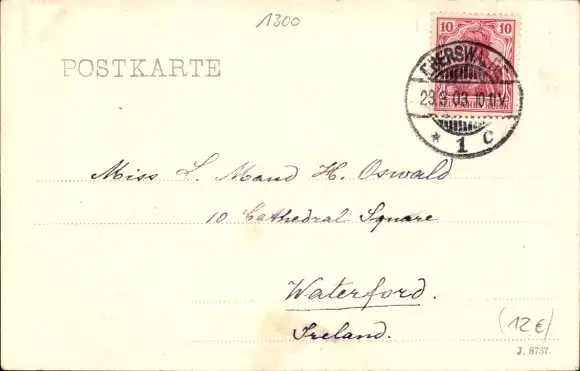 1300
10 10
POSTKARTE
EBERSWALDE
29.3.03.10-11V.
* 1 c
Miss L. Maud H. Oswald
10 Cathedral Square
Waterford.
Ireland.
(12€)
J. 8737.